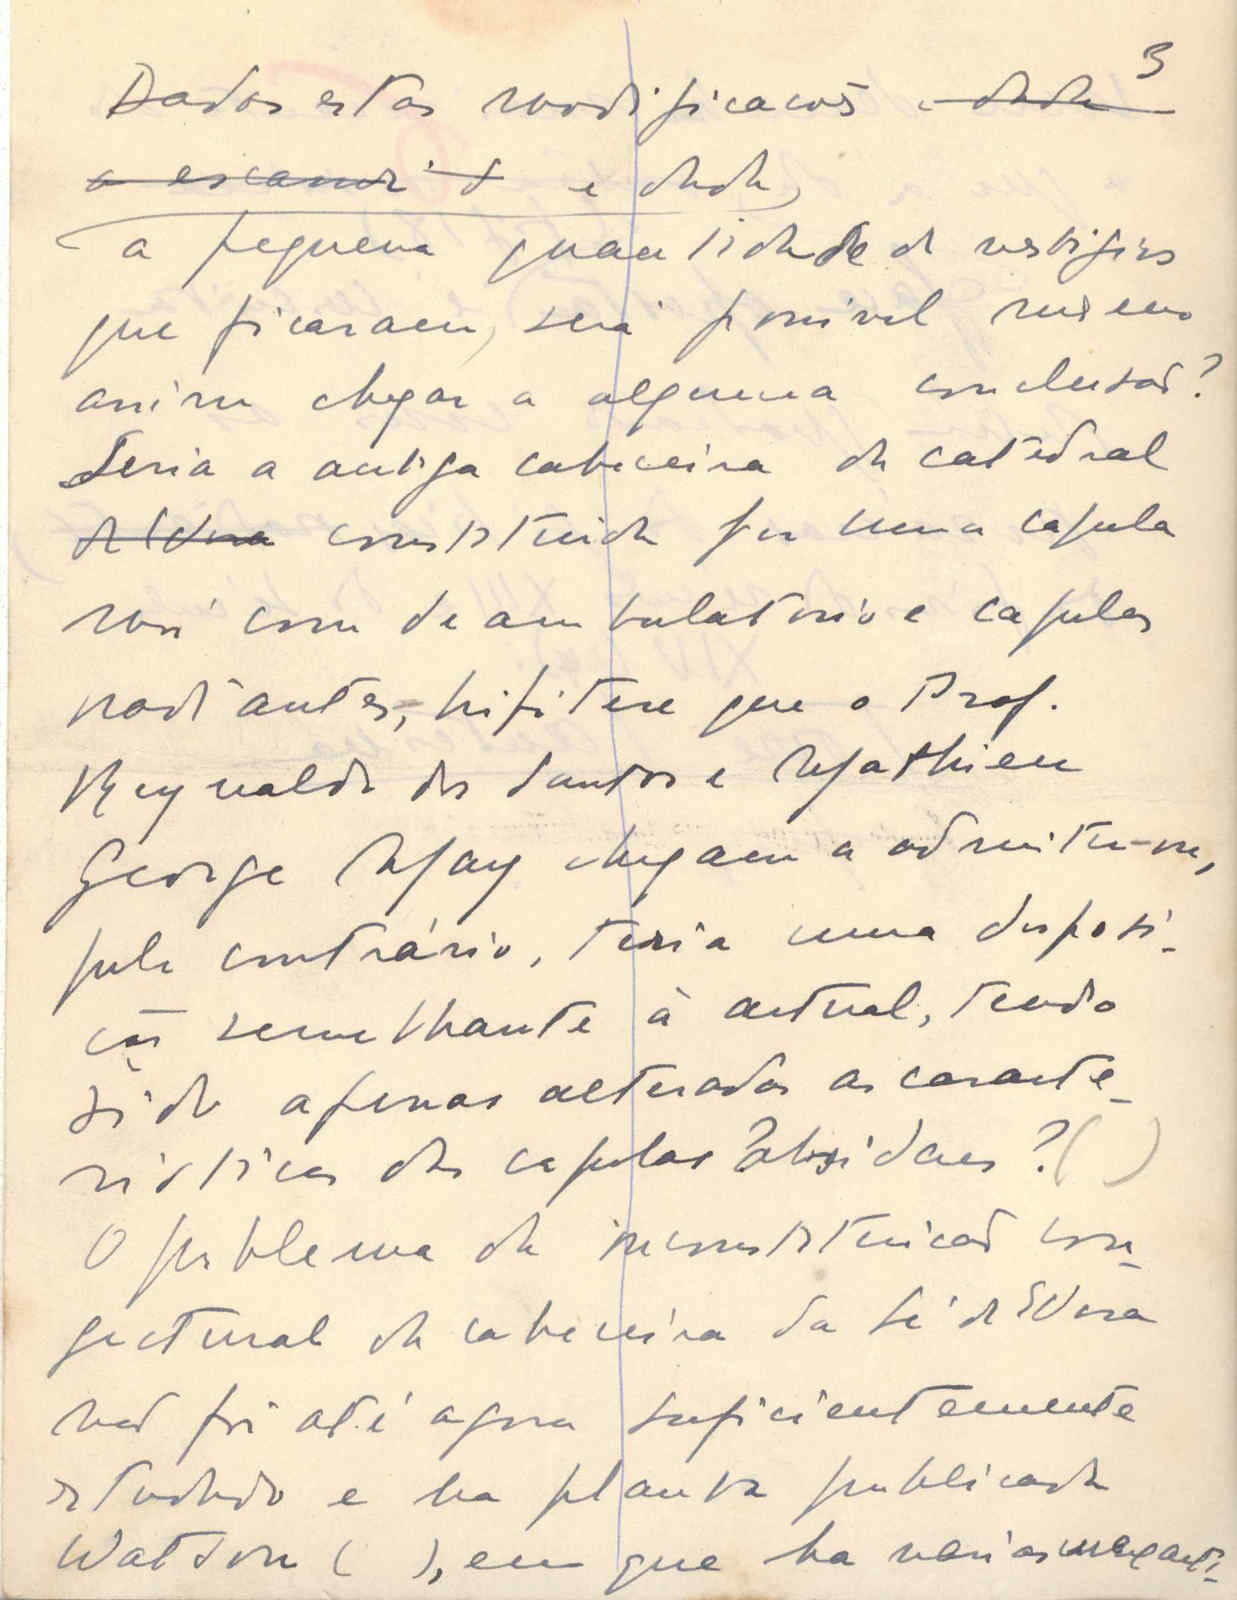 3
Dados estas modificações e dada
a escassi e dada,
a pequena quantidade de vestigios
que ficaram, será possivel mesmo
assim chegar a alguma conclusão?
Seria a antiga cabeceira da catedral
de Evora constituida por uma capela
mór com deambulatorio e capelas
radiantes, hipotese que o Prof.
Reynaldo dos Santos e Mathieu
George May chegam a admitir ou,
pelo contrário, teria uma disposi-
ção semelhante à actual, tendo
sido apenas alteradas as caracte-
risticas das capelas absidaes? ( )
O problema da reconstituicão con-
jectural da cabeceira da Sé de Evora
não foi até agora suficientemente
estudado e na planta publicada
Watson ( ), em que ha varias inexacti-